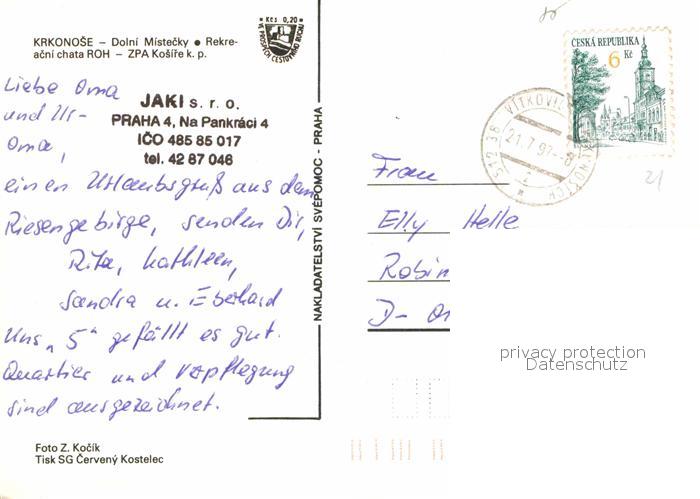 KRKONOŠE – Dolní Místečky • Rekre-
ační chata ROH – ZPA Košíře k. p.
Kčs 0,20
VE PROSPĚCH CESTOVNÍHO RUCHU
JAKI s. r. o.
PRAHA 4, Na Pankráci 4
IČO 485 85 017
tel. 42 87 046
Liebe Oma
und Ur-
Oma,
einen Urlaubsgruß aus dem
Riesengebirge, senden Dir,
Rita, Kathleen,
Sandra u. Eberhard
Uns „5“ gefällt es gut.
Quartier und Verpflegung
sind ausgezeichnet.
Foto Z. Kočík
Tisk SG Červený Kostelec
NAKLADATELSTVÍ SVÉPOMOC - PRAHA
ČESKÁ REPUBLIKA
6 Kč
512 38 VÍTKOVICE
21.7.97-8
Frau
Elly Helle
Robin
D-
21
privacy protection
Datenschutz